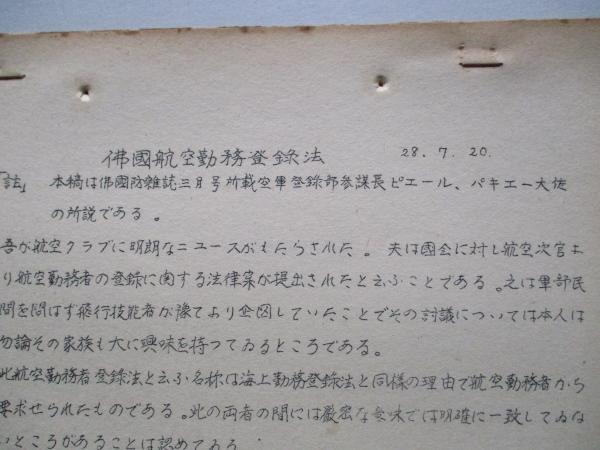 佛國航空勤務登錄法 28.7.20.
「註」 本稿は佛國防雜誌三月号所載空軍登録部参謀長ピエール、パキエー大佐
の所説である。
吾が航空クラブに明朗なニュースがもたらされた。夫は國会に対し航空次官よ
り航空勤務者の登録に関する法律案が提出されたと云ふことである。之は軍部民
間を問はず飛行技能者が豫てより企図していたことでその討議については本人は
勿論その家族も大に興味を持つてゐるところである。
此航空勤務者登録法と云ふ名称は海上勤務登録法と同様の理由で航空勤務者から
要求せられたものである。此の両者の間には厳密な意味では明確に一致してゐな
いところがあることは認めてゐる